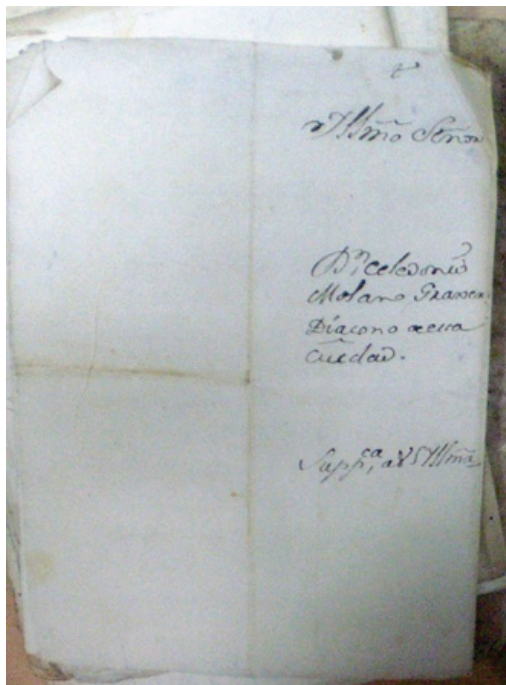 Yllmo Señor
Dn Celedonio
Molano
Diacono de esta
Ciudad.
Suppca a VS Yllma